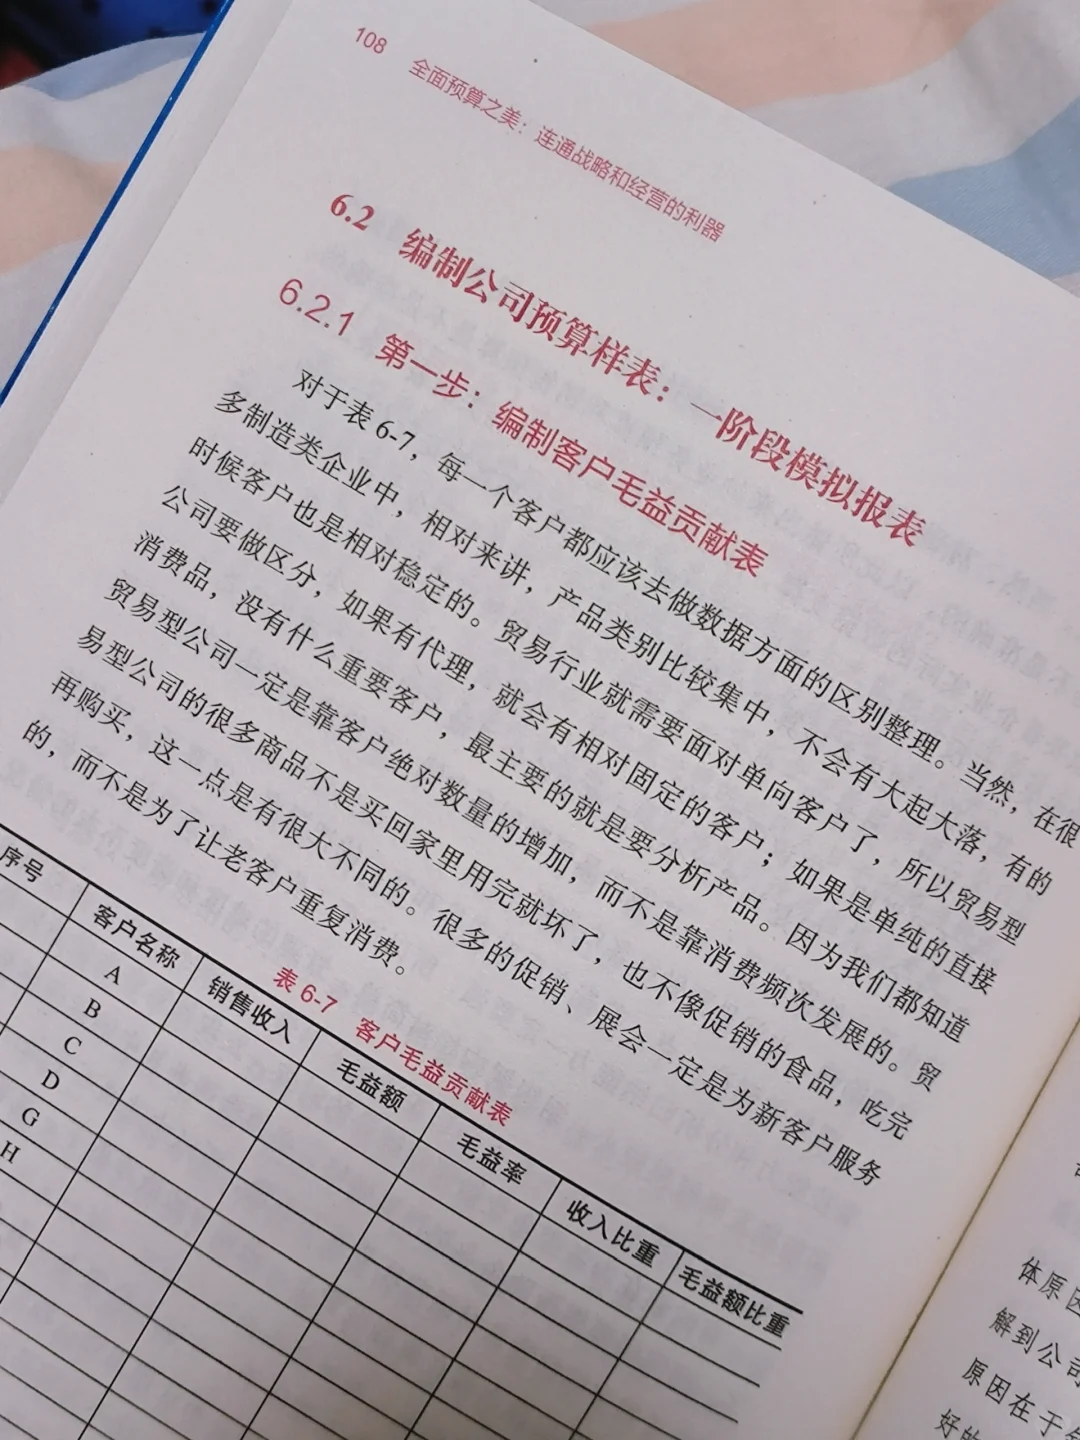 108
全面预算之美：连通战略和经营的利器
6.2 编制公司预算样表：一阶段模拟报表
6.2.1 第一步：编制客户毛益贡献表
对于表 6-7，每一个客户都应该去做数据方面的区别整理。当然，在很
多制造类企业中，相对来讲，产品类别比较集中，不会有大起大落，有的
时候客户也是相对稳定的。贸易行业就需要面对单向客户了，所以贸易型
公司要做区分，如果有代理，就会有相对固定的客户；如果是单纯的直接
消费品，没有什么重要客户，最主要的就是要分析产品。因为我们都知道
贸易型公司一定是靠客户绝对数量的增加，而不是靠消费频次发展的。贸
易型公司的很多商品不是买回家里用完就坏了，也不像促销的食品，吃完
再购买，这一点是有很大不同的。很多的促销、展会一定是为新客户服务
的，而不是为了让老客户重复消费。
表 6-7 客户毛益贡献表
序号 客户名称 销售收入 毛益额 毛益率 收入比重 毛益额比重
A
B
C
D
G
H
体原因
解到公司
原因在于
好的